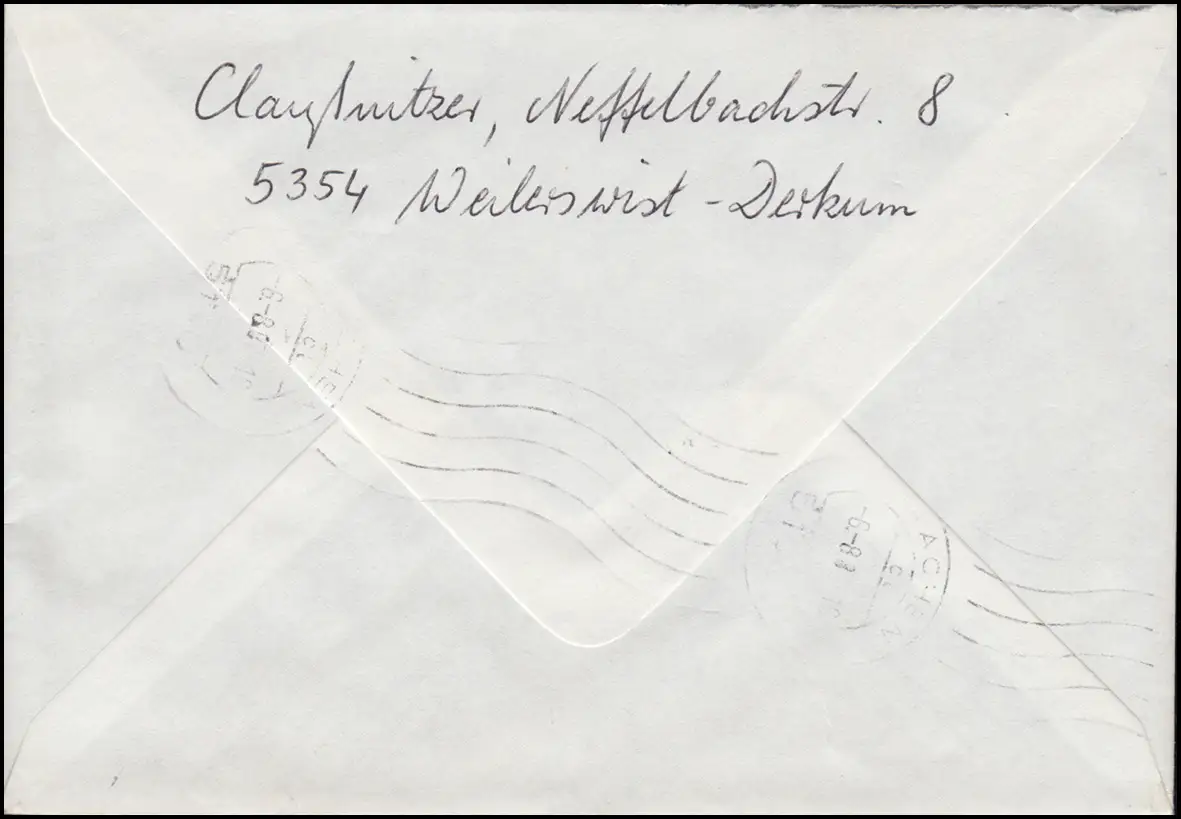 Claußnitzer, Neffelbachstr. 8
5354 Weilerswist - Derkum